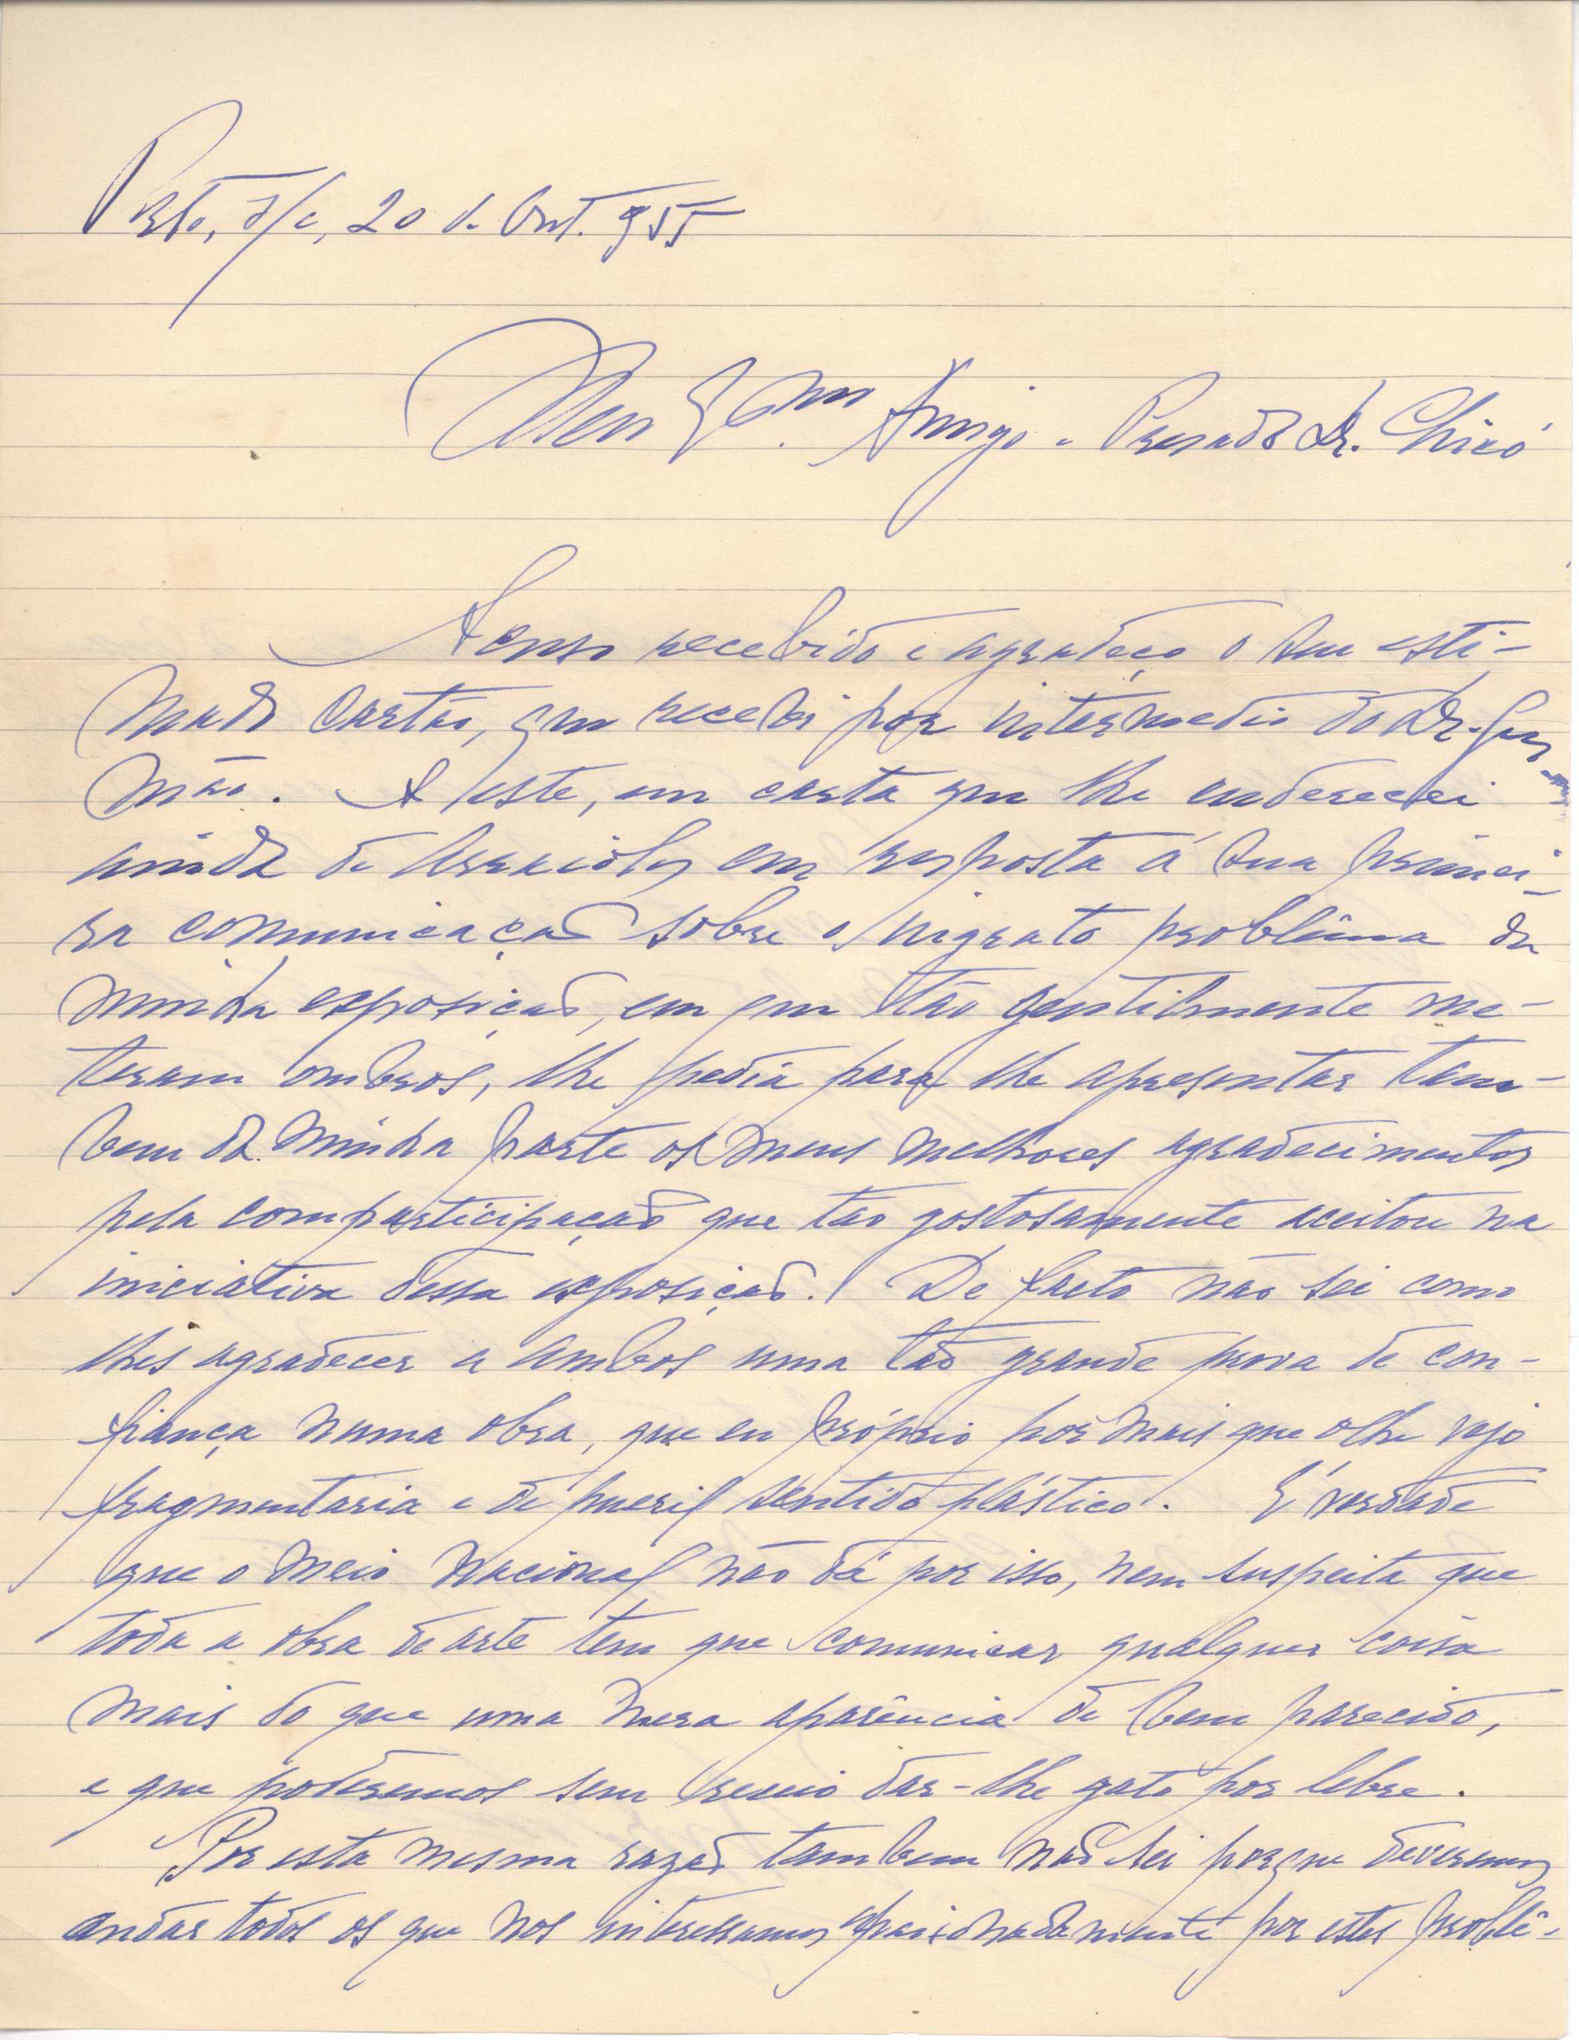 Porto, s/c, 20 de Out. 955
Meu Exmo. Amigo e Presado Dr. Chicó
Acuso recebido e agradeço o seu esti-
mado cartão, que recebi por intermedio do Dr. Gus
mão. A este, em carta que lhe enderecei
ainda de Arraiolos em resposta á sua primei-
ra comunicação sobre o ingrato problêma da
minha exposição, em que tão gentilmente me-
teram ombros, lhe pedia para lhe apresentar tam-
bem da minha parte os meus melhores agradecimentos
pela comparticipação que tão gostosamente aceitou na
iniciativa dessa exposição. De facto não sei como
lhes agradecer a ambos uma tão grande prova de con-
fiança numa obra, que eu próprio por mais que olhe vejo
fragmentaria e de pueril sentido plástico. É verdade
que o meio nacional não dá por isso, nem suspeita que
toda a obra de arte tem que comunicar qualquer coisa
mais do que uma mera aparência de bem parecido,
e que poderemos sem receio dar-lhe gato por lebre.
Por esta mesma razão tambem não sei porque deveremos
andar todos os que nos interessamos apaixonadamente por estes problê-